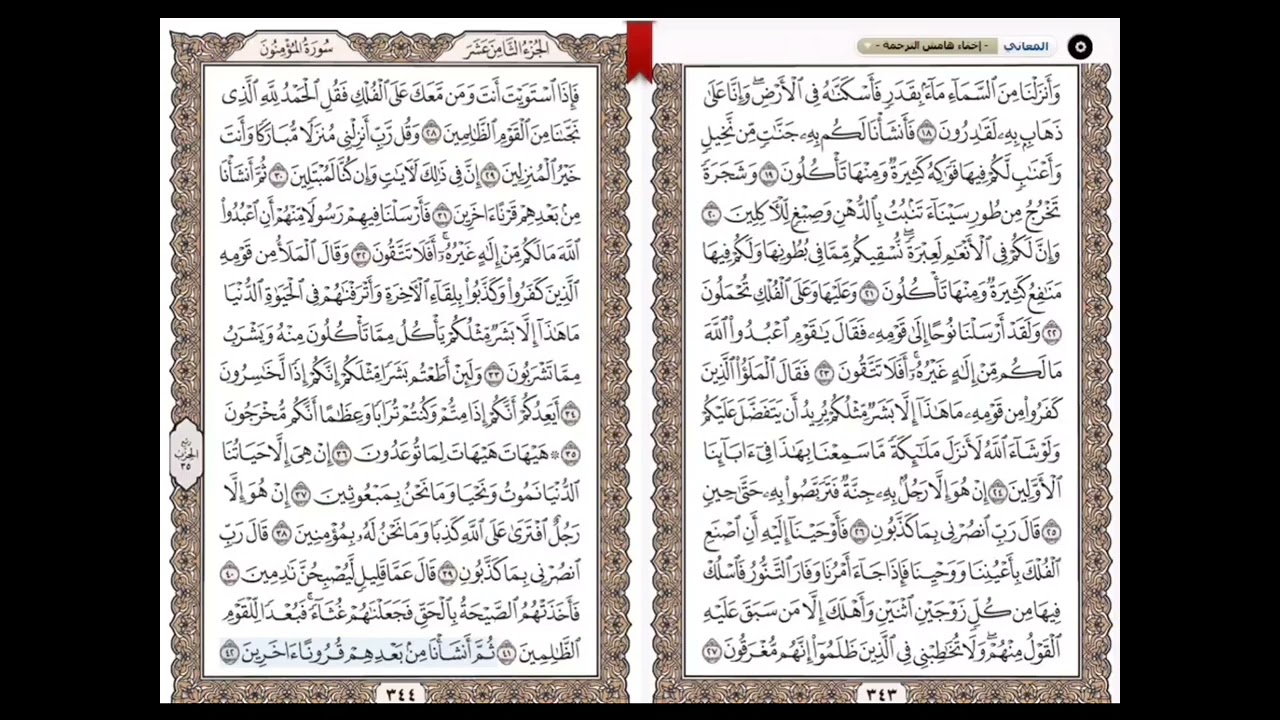 المعاني
- إخفاء هامش الترجمة -
وَأَنزَلْنَا مِنَ ٱلسَّمَآءِ مَآءًۢ بِقَدَرٍ فَأَسْكَنَّٰهُ فِى ٱلْأَرْضِ ۖ وَإِنَّا عَلَىٰ
ذَهَابٍۭ بِهِۦ لَقَٰدِرُونَ ١٨ فَأَنشَأْنَا لَكُم بِهِۦ جَنَّٰتٍ مِّن نَّخِيلٍ
وَأَعْنَٰبٍ لَّكُمْ فِيهَا فَوَٰكِهُ كَثِيرَةٌ وَمِنْهَا تَأْكُلُونَ ١٩ وَشَجَرَةً
تَخْرُجُ مِن طُورِ سَيْنَآءَ تَنۢبُتُ بِٱلدُّهْنِ وَصِبْغٍ لِّلْءَاكِلِينَ ٢٠
وَإِنَّ لَكُمْ فِى ٱلْأَنْعَٰمِ لَعِبْرَةً ۖ نُّسْقِيكُم مِّمَّا فِى بُطُونِهَا وَلَكُمْ فِيهَا
مَنَٰفِعُ كَثِيرَةٌ وَمِنْهَا تَأْكُلُونَ ٢١ وَعَلَيْهَا وَعَلَى ٱلْفُلْكِ تُحْمَلُونَ
٢٢ وَلَقَدْ أَرْسَلْنَا نُوحًا إِلَىٰ قَوْمِهِۦ فَقَالَ يَٰقَوْمِ ٱعْبُدُوا۟ ٱللَّهَ
مَا لَكُم مِّنْ إِلَٰهٍ غَيْرُهُۥٓ ۖ أَفَلَا تَتَّقُونَ ٢٣ فَقَالَ ٱلْمَلَؤُا۟ ٱلَّذِينَ
كَفَرُوا۟ مِن قَوْمِهِۦ مَا هَٰذَآ إِلَّا بَشَرٌ مِّثْلُكُمْ يُرِيدُ أَن يَتَفَضَّلَ عَلَيْكُمْ
وَلَوْ شَآءَ ٱللَّهُ لَأَنزَلَ مَلَٰٓئِكَةً مَّا سَمِعْنَا بِهَٰذَا فِىٓ ءَابَآئِنَا
ٱلْأَوَّلِينَ ٢٤ إِنْ هُوَ إِلَّا رَجُلٌۢ بِهِۦ جِنَّةٌ فَتَرَبَّصُوا۟ بِهِۦ حَتَّىٰ حِينٍ
٢٥ قَالَ رَبِّ ٱنصُرْنِى بِمَا كَذَّبُونِ ٢٦ فَأَوْحَيْنَآ إِلَيْهِ أَنِ ٱصْنَعِ
ٱلْفُلْكَ بِأَعْيُنِنَا وَوَحْيِنَا فَإِذَا جَآءَ أَمْرُنَا وَفَارَ ٱلتَّنُّورُ فَٱسْلُكْ
فِيهَا مِن كُلٍّ زَوْجَيْنِ ٱثْنَيْنِ وَأَهْلَكَ إِلَّا مَن سَبَقَ عَلَيْهِ
ٱلْقَوْلُ مِنْهُمْ ۖ وَلَا تُخَٰطِبْنِى فِى ٱلَّذِينَ ظَلَمُوٓا۟ إِنَّهُم مُّغْرَقُونَ ٢٧
٣٤٣
الجزء الثامن عشر
سورة المؤمنون
فَإِذَا ٱسْتَوَيْتَ أَنتَ وَمَن مَّعَكَ عَلَى ٱلْفُلْكِ فَقُلِ ٱلْحَمْدُ لِلَّهِ ٱلَّذِى
نَجَّىٰنَا مِنَ ٱلْقَوْمِ ٱلظَّٰلِمِينَ ٢٨ وَقُل رَّبِّ أَنزِلْنِى مُنزَلًا مُّبَارَكًا وَأَنتَ
خَيْرُ ٱلْمُنزِلِينَ ٢٩ إِنَّ فِى ذَٰلِكَ لَءَايَٰتٍ وَإِن كُنَّا لَمُبْتَلِينَ ٣٠ ثُمَّ أَنشَأْنَا
مِنۢ بَعْدِهِمْ قَرْنًا ءَاخَرِينَ ٣١ فَأَرْسَلْنَا فِيهِمْ رَسُولًا مِّنْهُمْ أَنِ ٱعْبُدُوا۟
ٱللَّهَ مَا لَكُم مِّنْ إِلَٰهٍ غَيْرُهُۥٓ ۖ أَفَلَا تَتَّقُونَ ٣٢ وَقَالَ ٱلْمَلَأُ مِن قَوْمِهِ
ٱلَّذِينَ كَفَرُوا۟ وَكَذَّبُوا۟ بِلِقَآءِ ٱلْءَاخِرَةِ وَأَتْرَفْنَٰهُمْ فِى ٱلْحَيَوٰةِ ٱلدُّنْيَا
مَا هَٰذَآ إِلَّا بَشَرٌ مِّثْلُكُمْ يَأْكُلُ مِمَّا تَأْكُلُونَ مِنْهُ وَيَشْرَبُ
مِمَّا تَشْرَبُونَ ٣٣ وَلَئِنْ أَطَعْتُم بَشَرًا مِّثْلَكُمْ إِنَّكُمْ إِذًا لَّخَٰسِرُونَ
٣٤ أَيَعِدُكُمْ أَنَّكُمْ إِذَا مِتُّمْ وَكُنتُمْ تُرَابًا وَعِظَٰمًا أَنَّكُم مُّخْرَجُونَ
٣٥ ۞ هَيْهَاتَ هَيْهَاتَ لِمَا تُوعَدُونَ ٣٦ إِنْ هِىَ إِلَّا حَيَاتُنَا
ٱلدُّنْيَا نَمُوتُ وَنَحْيَا وَمَا نَحْنُ بِمَبْعُوثِينَ ٣٧ إِنْ هُوَ إِلَّا
رَجُلٌ ٱفْتَرَىٰ عَلَى ٱللَّهِ كَذِبًا وَمَا نَحْنُ لَهُۥ بِمُؤْمِنِينَ ٣٨ قَالَ رَبِّ
ٱنصُرْنِى بِمَا كَذَّبُونِ ٣٩ قَالَ عَمَّا قَلِيلٍ لَّيُصْبِحُنَّ نَٰدِمِينَ ٤٠
فَأَخَذَتْهُمُ ٱلصَّيْحَةُ بِٱلْحَقِّ فَجَعَلْنَٰهُمْ غُثَآءً ۚ فَبُعْدًا لِّلْقَوْمِ
ٱلظَّٰلِمِينَ ٤١ ثُمَّ أَنشَأْنَا مِنۢ بَعْدِهِمْ قُرُونًا ءَاخَرِينَ ٤٢
ربع
الحزب
٣٥
٣٤٤